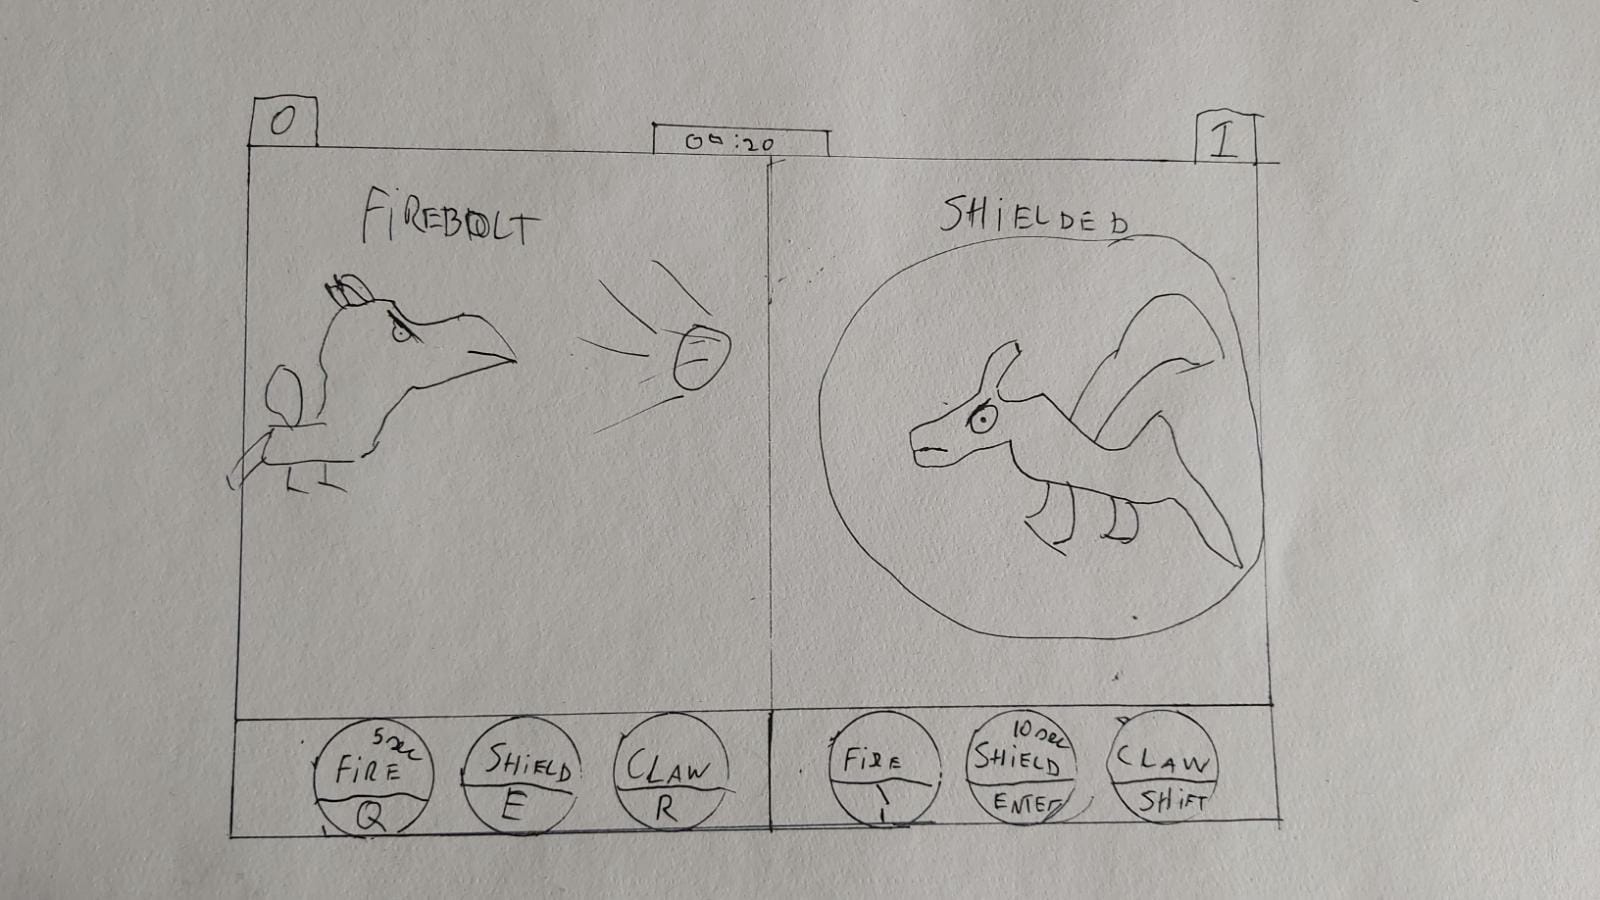 0
1
FIREBOLT
SHIELDED
5sec
FIRE
Q
SHIELD
E
CLAW
R
FIRE
10sec
SHIELD
ENTER
CLAW
SHIFT